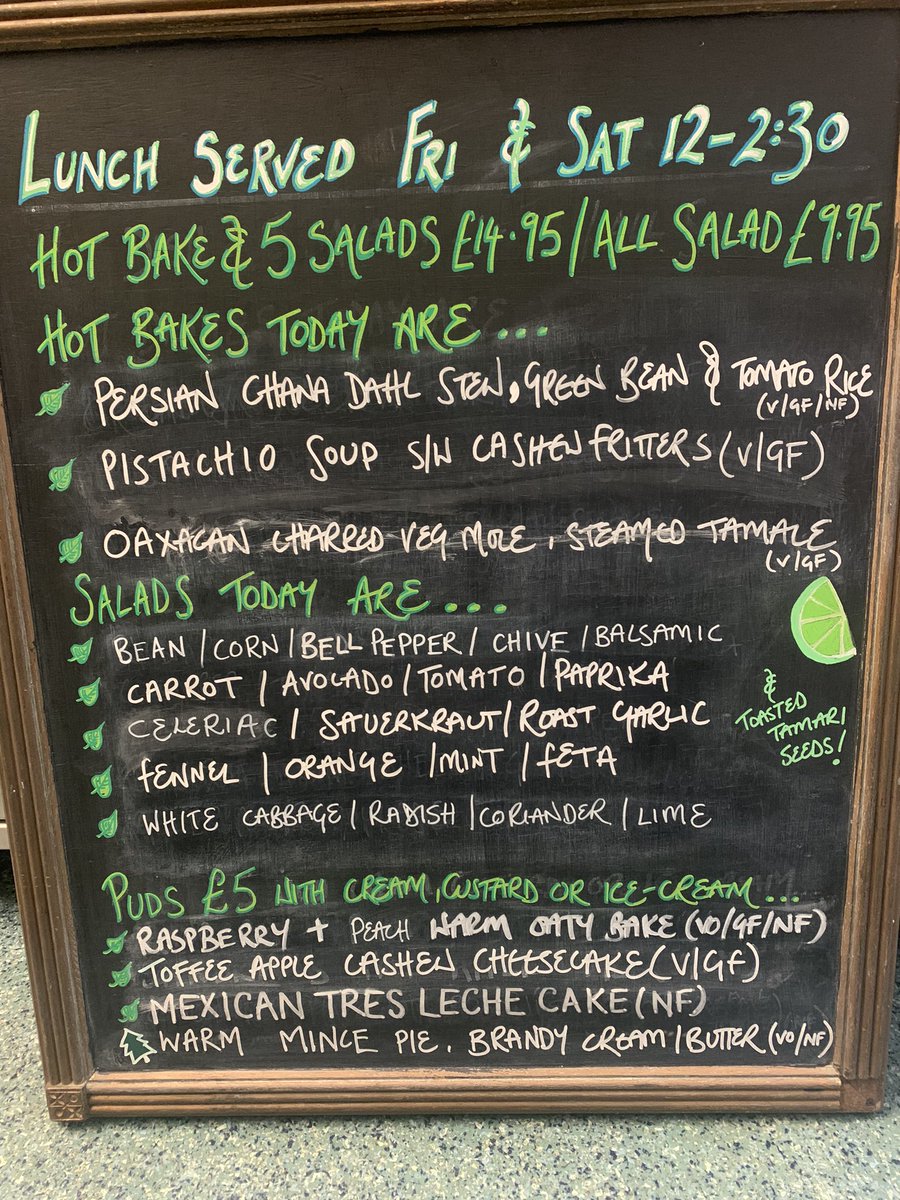 LUNCH SERVED FRI & SAT 12-2:30
HOT BAKE & 5 SALADS £14.95 / ALL SALAD £9.95
HOT BAKES TODAY ARE...
PERSIAN CHANA DAHL STEW, GREEN BEAN & TOMATO RICE
(V/GF/NF)
PISTACHIO SOUP S/W CASHEW FRITTERS (V/GF)
OAXACAN CHARRED VEG MOLE, STEAMED TAMALE
(V/GF)
SALADS TODAY ARE...
BEAN / CORN / BELL PEPPER / CHIVE / BALSAMIC
CARROT / AVOCADO / TOMATO / PAPRIKA
CELERIAC / SAUERKRAUT / ROAST GARLIC
FENNEL / ORANGE / MINT / FETA
WHITE CABBAGE / RADISH / CORIANDER / LIME
&
TOASTED
TAMARI
SEEDS!
PUDS £5 WITH CREAM, CUSTARD OR ICE-CREAM...
RASPBERRY + PEACH WARM OATY BAKE (VO/GF/NF)
TOFFEE APPLE CASHEW CHEESECAKE (V/GF)
MEXICAN TRES LECHE CAKE (NF)
WARM MINCE PIE. BRANDY CREAM / BUTTER (VO/NF)